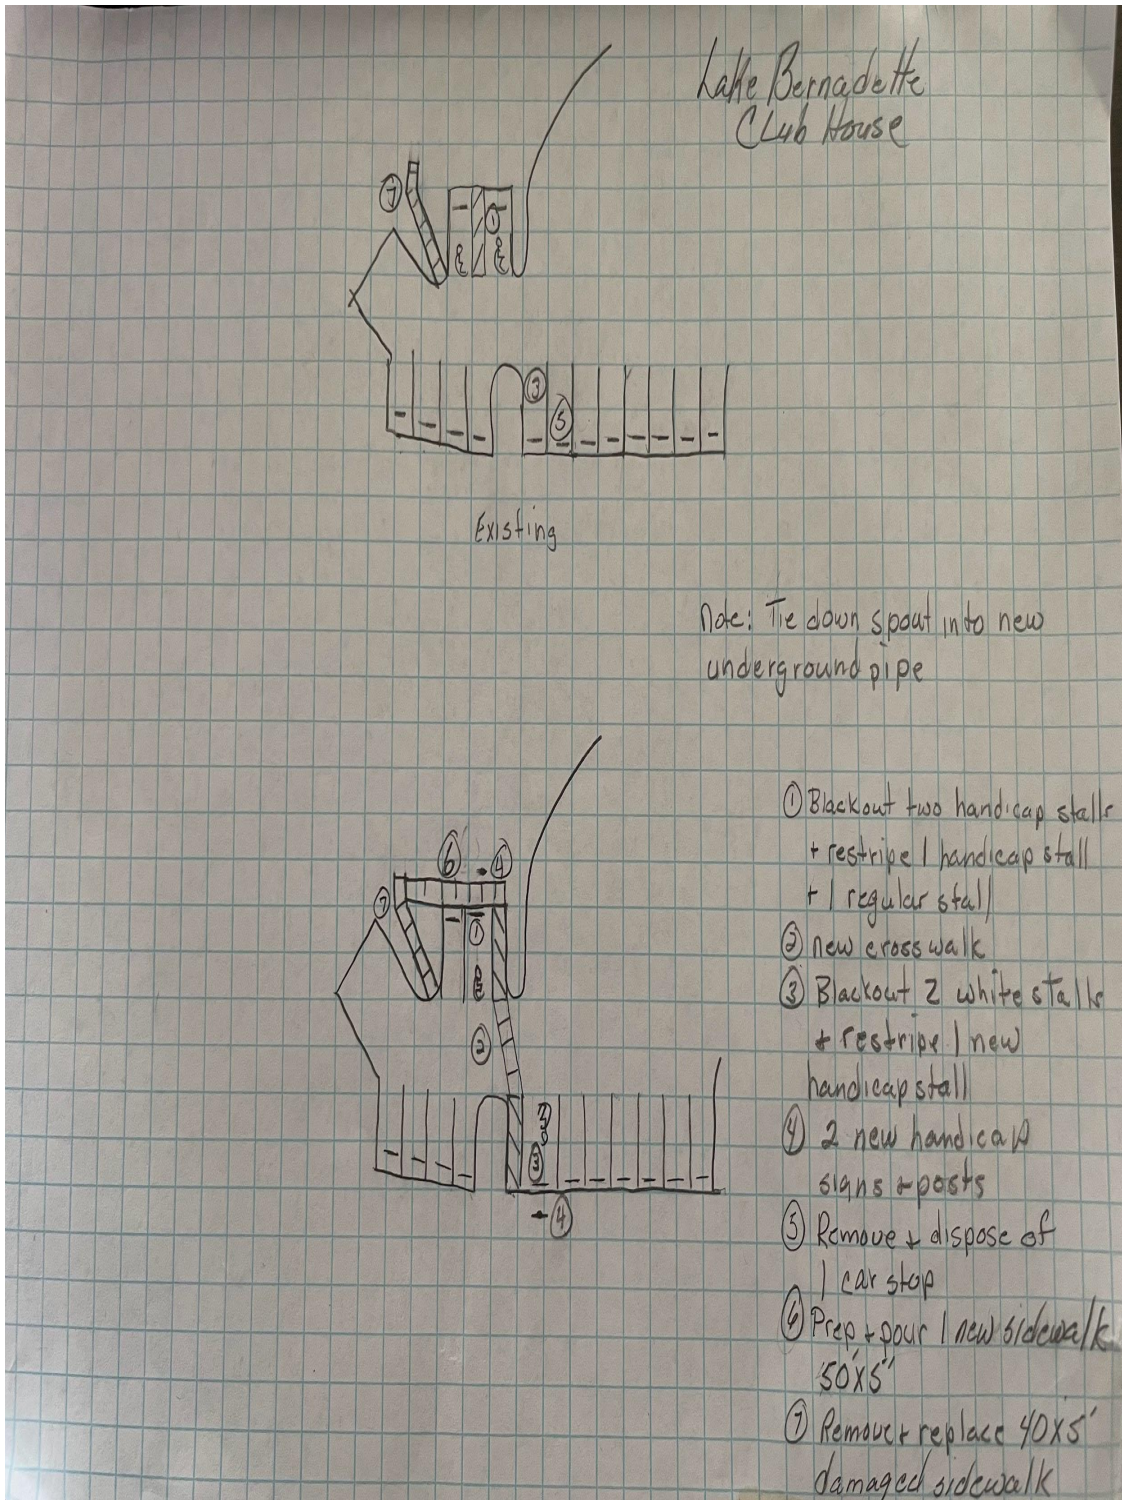 Lake Bernadette
Club House
⑦
①
③
⑤
Existing
Note: Tie down spout into new
underground pipe
⑥ ④
⑦
①
②
③
④
① Blackout two handicap stalls
+ restripe 1 handicap stall
+ 1 regular stall
② new crosswalk
③ Blackout 2 white stalls
+ restripe 1 new
handicap stall
④ 2 new handicap
signs + posts
⑤ Remove + dispose of
1 car stop
⑥ Prep + pour 1 new sidewalk
50'x5'
⑦ Remove + replace 40x5'
damaged sidewalk